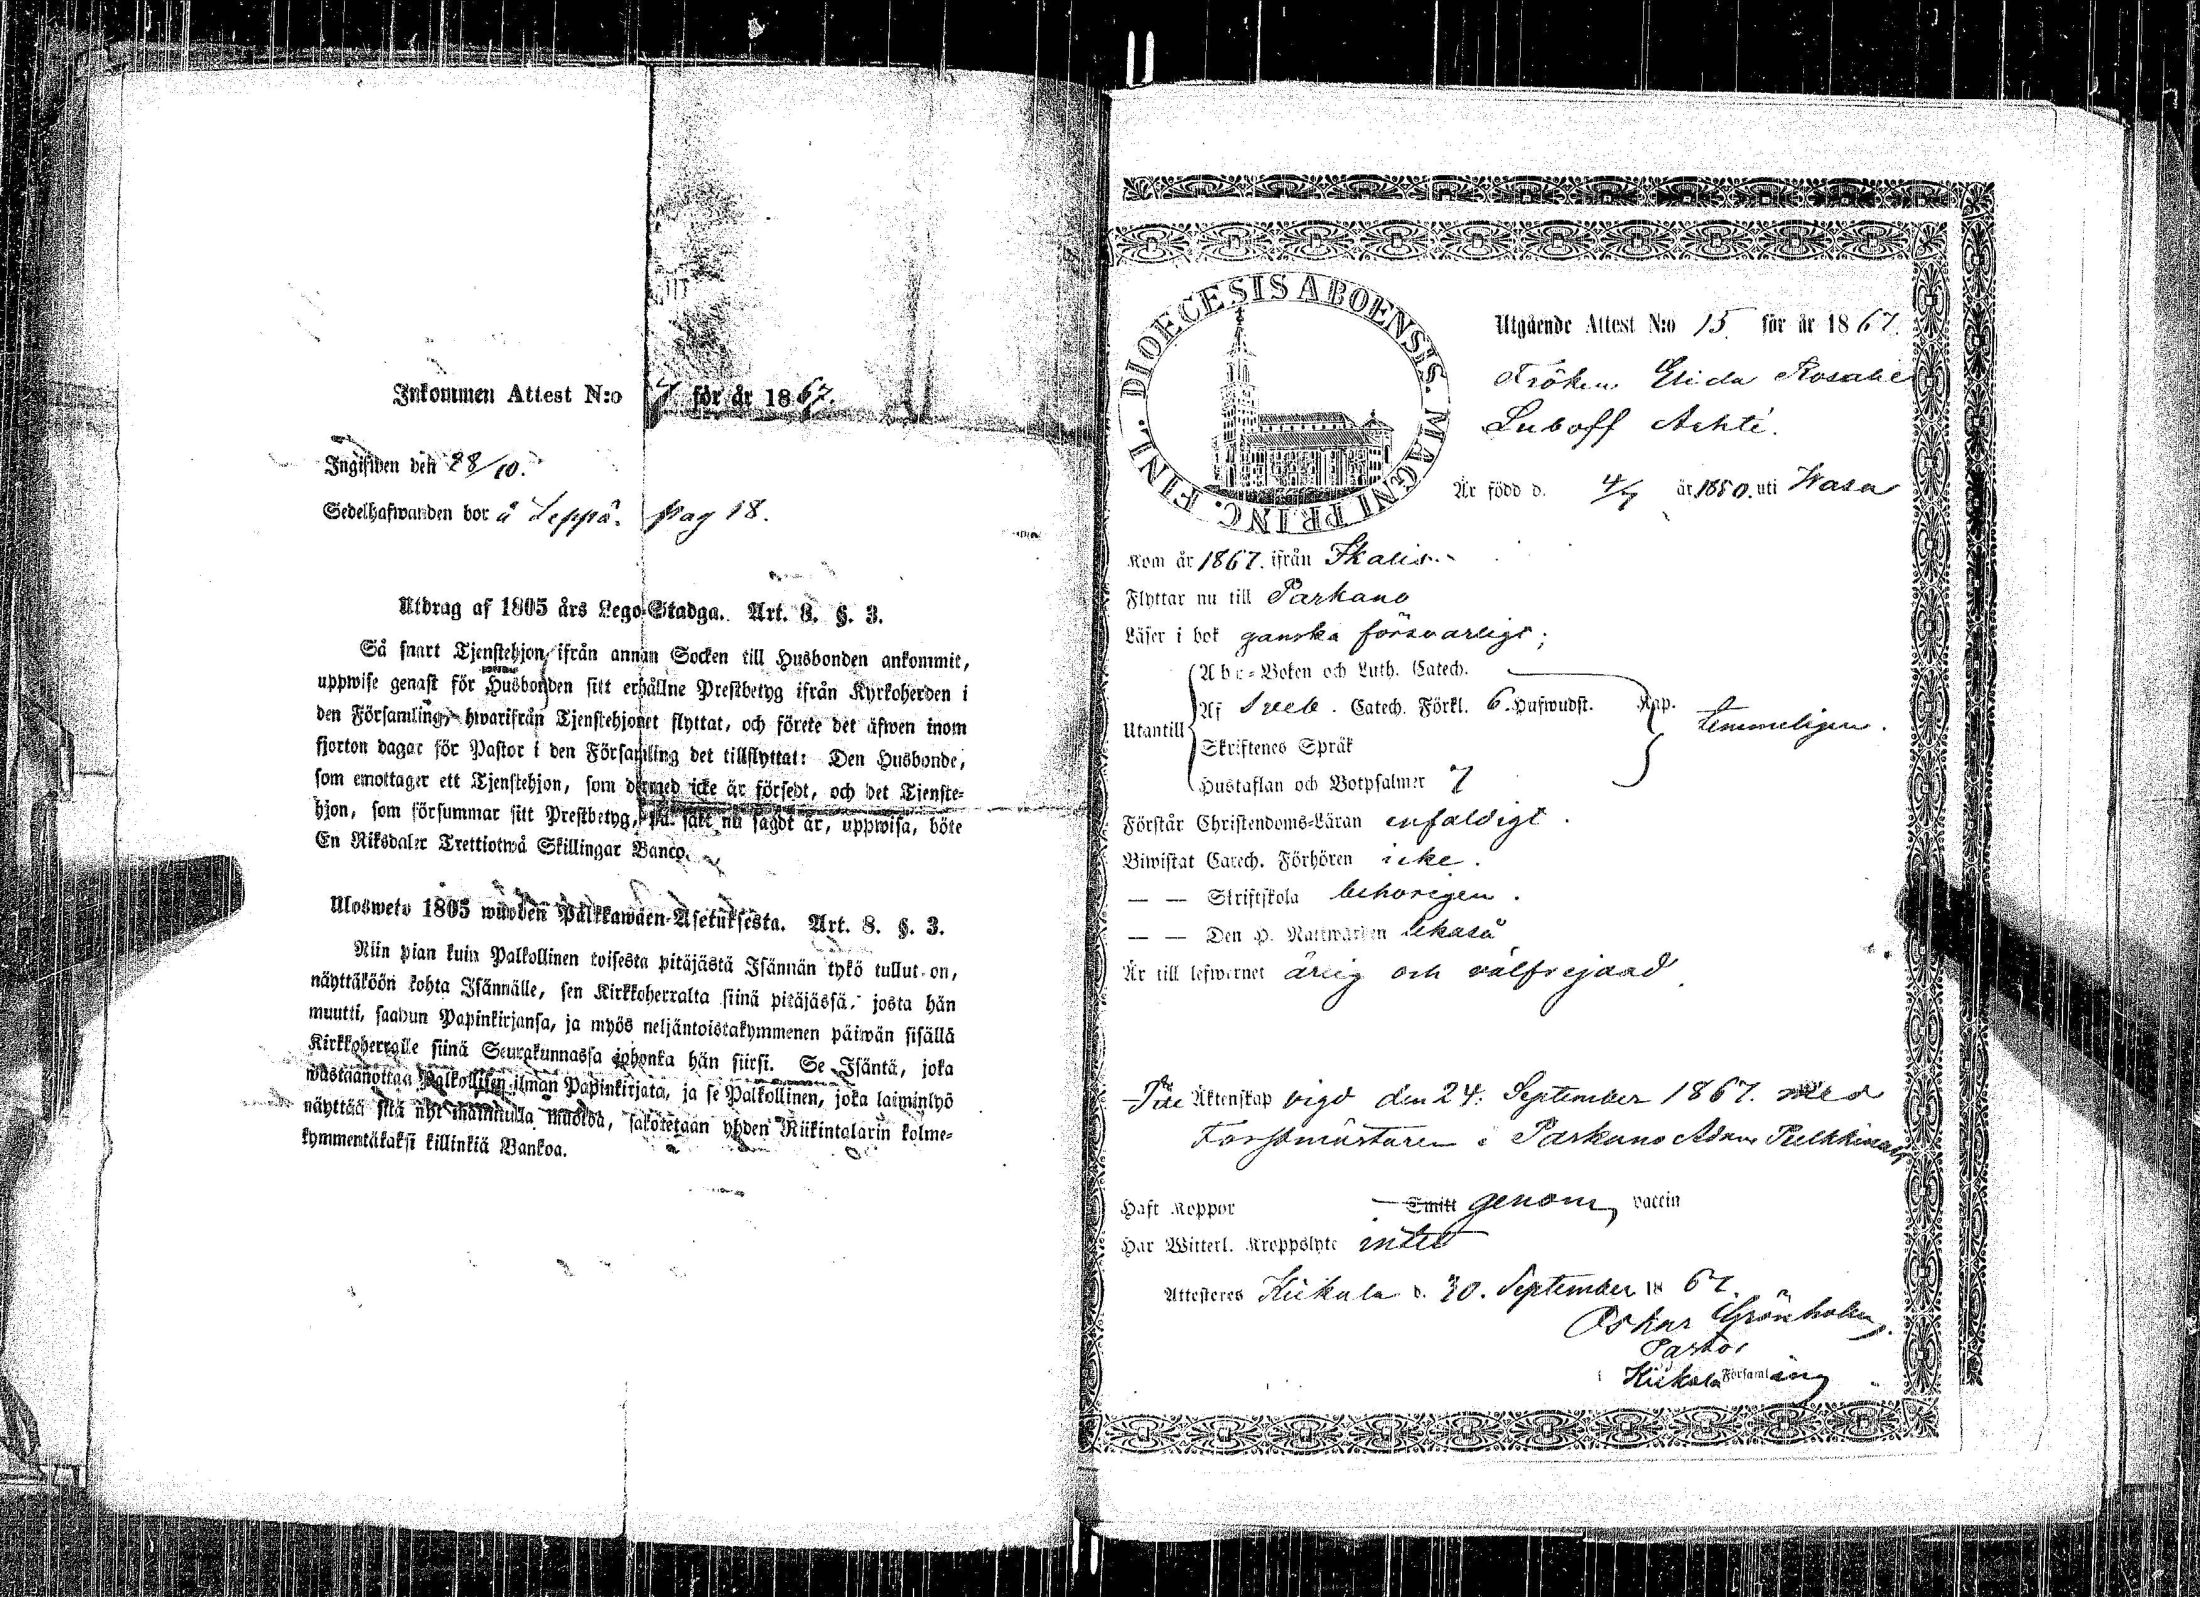 Inkommen Attest N:o 7 för år 1867.
Ingifwen den 28/10.
Sedelhafwanden bor å Leppä. pag 18.
Utdrag af 1805 års Lego-Stadga. Art. 8. §. 3.
Så snart Tjenstehjon, ifrån annan Socken till Husbonden ankommit,
uppwise genast för Husbonden sitt erhållne Prestbetyg ifrån Kyrkoherden i
den Församling, hwarifrån Tjenstehjonet flyttat, och förete det äfwen inom
fjorton dagar för Pastor i den Församling det tillflyttat: Den Husbonde,
som emottager ett Tjenstehjon, som dermed icke är försedt, och det Tjenste-
hjon, som försummar sitt Prestbetyg, på sätt nu sagdt är, uppwisa, böte
En Riksdaler Trettiotwå Skillingar Banco.
Ulosweto 1805 wuoden Palkkawäen-Asetuksesta. Art. 8. §. 3.
Niin pian kuin Palkollinen toisesta pitäjästä Isännän tykö tullut on,
näyttäköön kohta Isännälle, sen Kirkkoherralta siinä pitäjässä, josta hän
muutti, saadun Papinkirjansa, ja myös neljäntoistakymmenen päiwän sisällä
Kirkkoherralle siinä Seurakunnassa johonka hän siirsi. Se Isäntä, joka
wastaanottaa Palkollisen ilman Papinkirjata, ja se Palkollinen, joka laiminlyö
näyttää sitä nyt mainitulla muodoa, sakotetaan yhden Riikintalarin kolme-
kymmentäkaksi killinkiä Bankoa.
DIOECESIS ABOENSIS. MAGNI PRINC. FINL.
Utgående Attest N:o 15 för år 1867.
Fröken Elida Rosalie
Luboff Ashté.
Är född d. 4/7 år 1850. uti Wasa
Kom år 1867. ifrån Ikalis.
Flyttar nu till Parkano
Läser i bok ganska försvarligt;
Utantill
Abc-Boken och Luth. Catech.
Af Sveb. Catech. Förkl. 6. Hufwudst. Kap. temmeligen.
Skriftenes Språk
Hustaflan och Botpsalmer 7
Förstår Christendoms-Läran enfaldigt.
Biwistat Catech. Förhören icke.
— — Skriftskola behörigen.
— — Den H. Nattwarden likaså
Är till lefwernet ärlig och välfrejdad.
Till Äktenskap vigd den 24. September 1867. med
Forstmästaren i Parkano Adam Pulkkinen
Haft Koppor Smitt genom vaccin
Har Witterl. Kroppslyte intet
Attesteres Kiikala d. 30. September 1867.
Oskar Grönholm.
Pastor
i Kiikala Församling